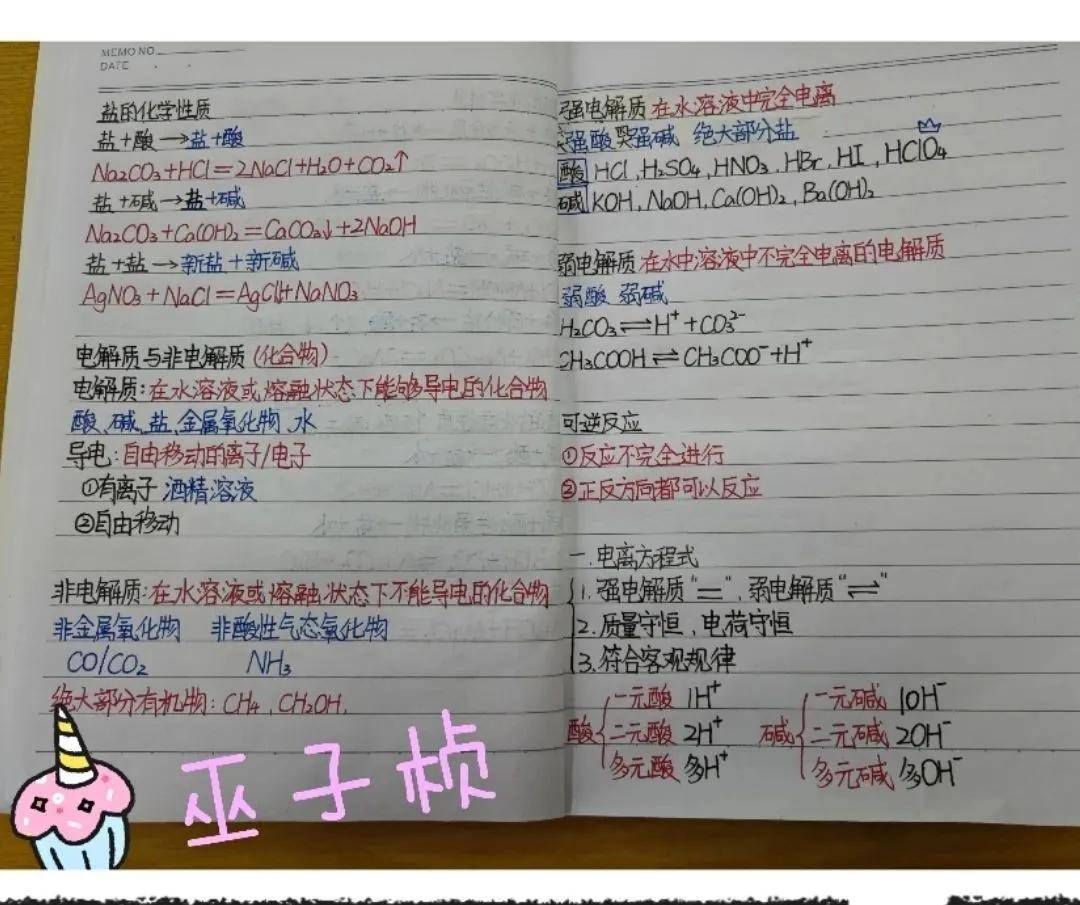 MEMO NO
DATE
盐的化学性质
盐+酸→盐+酸
Na₂CO₃+HCl=2NaCl+H₂O+CO₂↑
盐+碱→盐+碱
Na₂CO₃+Ca(OH)₂=CaCO₃↓+2NaOH
盐+盐→新盐+新碱
AgNO₃+NaCl=AgCl↓+NaNO₃
电解质与非电解质(化合物)
电解质:在水溶液或熔融状态下能够导电的化合物
酸、碱、盐、金属氧化物、水
导电:自由移动的离子/电子
①有离子 酒精溶液
②自由移动
非电解质:在水溶液或熔融状态下不能导电的化合物
非金属氧化物 非酸性气态氢化物
CO/CO₂ NH₃
绝大部分有机物:CH₄、CH₂OH、
巫子桢
强电解质 在水溶液中完全电离
强酸 强碱 绝大部分盐
酸 HCl、H₂SO₄、HNO₃、HBr、HI、HClO₄
碱 KOH、NaOH、Ca(OH)₂、Ba(OH)₂
弱电解质 在水中溶液中不完全电离的电解质
弱酸 弱碱
H₂CO₃⇌H⁺+CO₃²⁻
CH₃COOH⇌CH₃COO⁻+H⁺
可逆反应
①反应不完全进行
②正反方向都可以反应
一.电离方程式
1.强电解质"=",弱电解质"⇌"
2.质量守恒、电荷守恒
3.符合客观规律
酸 一元酸 1H⁺ 碱 一元碱 1OH⁻
二元酸 2H⁺ 二元碱 2OH⁻
多元酸 多H⁺ 多元碱 多OH⁻